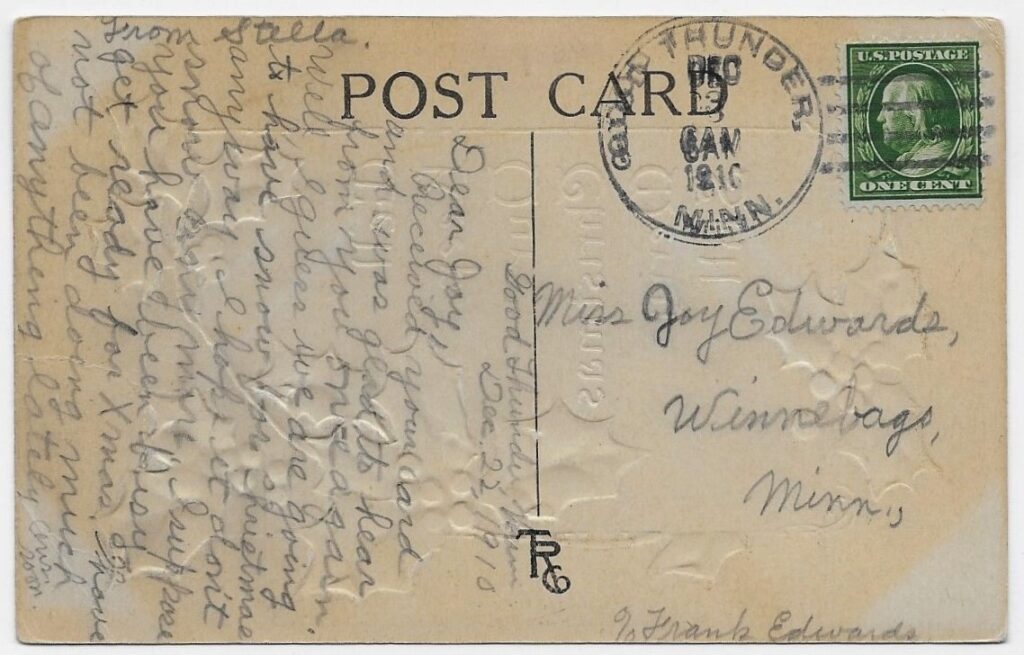 POST CARD
GOOD THUNDER.
DEC
6 AM
1910
MINN.
U.S. POSTAGE
ONE CENT
Miss Joy Edwards,
Winnebago,
Minn.,
c/o Frank Edwards
TRG
Good Thunder Minn
Dec. 22, 1910
Dear Joy,
Received your card
and was glad to hear
from you once again.
Well I guess we are going
to have snow for Christmas
anyway. I hope it don't
snow any more. I suppose
you have been busy
get ready for Xmas. I have
not been doing much
of anything lately
soon.
From Stella.